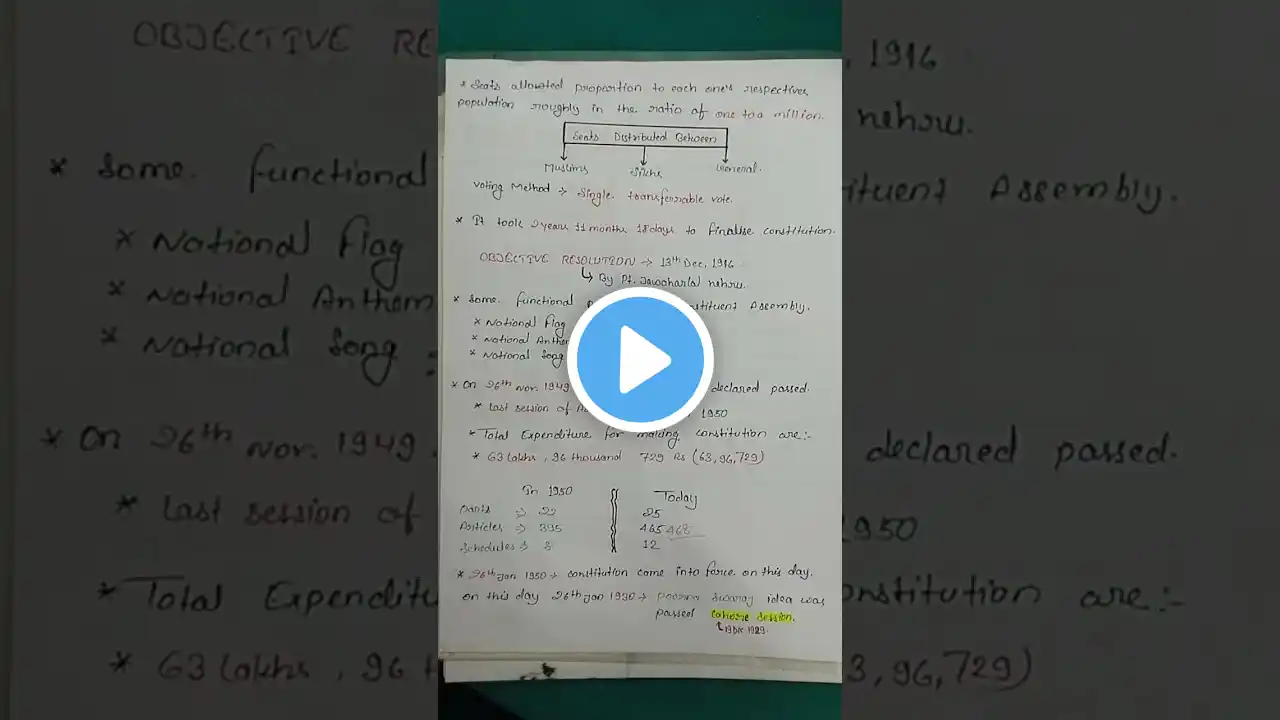 * Seats allowated proportion to each one's respective
population roughly in the ratio of one to a million.
Seats Distributed Between
Muslims Sikhs General.
Voting Method → Single transferrable vote.
* It took 2 years 11 months 18 days to finalise constitution.
OBJECTIVE RESOLUTION → 13th Dec, 1946
↳ By Pt. Jawaharlal nehru.
* Some functional Assembly.
* National flag
* National Anthem
* National Song
* On 26th Nov. 1949 declared passed.
* Last session of 1950
* Total Expenditure for making constitution are:-
* 63 lakhs, 96 thousand 729 Rs (63,96,729)
In 1950 Today
Parts → 22 25
Articles → 395 465 468
Schedules → 8 12
* 26th Jan 1950 → constitution came into force on this day.
on this day 26th Jan 1930 → poorna swaraj idea was
passed Lahore session.
↑ 19 Dec 1929.